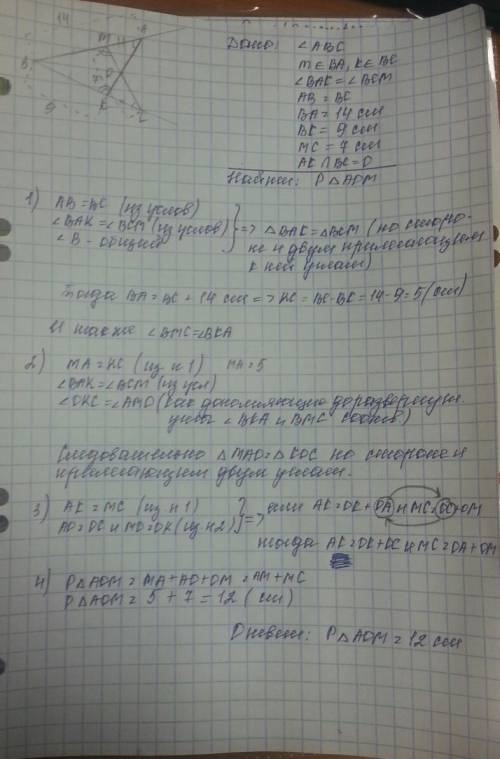 14
M
A
B
O
K
C
9
Дано: ∠ABC
M∈BA, K∈BC
∠BAK=∠BCM
AB=BC
BA=14 см
BK=9 см
MC=7 см
AK∩BC=O
Найти: P△AOM
1) AB=BC (из услов)
∠BAK=∠BCM (из услов) => △BAK=△BCM (по сторо-
∠B - общий
не и двум прилегающем
к ней углам)
Тогда BA=BC=14 см => KC=BC-BK=14-9=5(см)
И также ∠BMC=∠BKA
2) MA=KC (из п 1) MA=5
∠BAK=∠BCM (из усл)
∠OKC=∠AMO (как дополняющие до развернут.
углы ∠BKA и BMC соотв.)
Следовательно △MAO=△KOC по стороне и
прилегающим двум углам.
3) AK=MC (из п 1)
AO=OC и MO=OK (из п2) => или AK=OK+OA и MC=OC+OM
тогда AK=OK+OC и MC=OA+OM
4) P△AOM=MA+AO+OM=AM+MC
P△AOM=5+7=12 (см)
Ответ: P△AOM=12 см